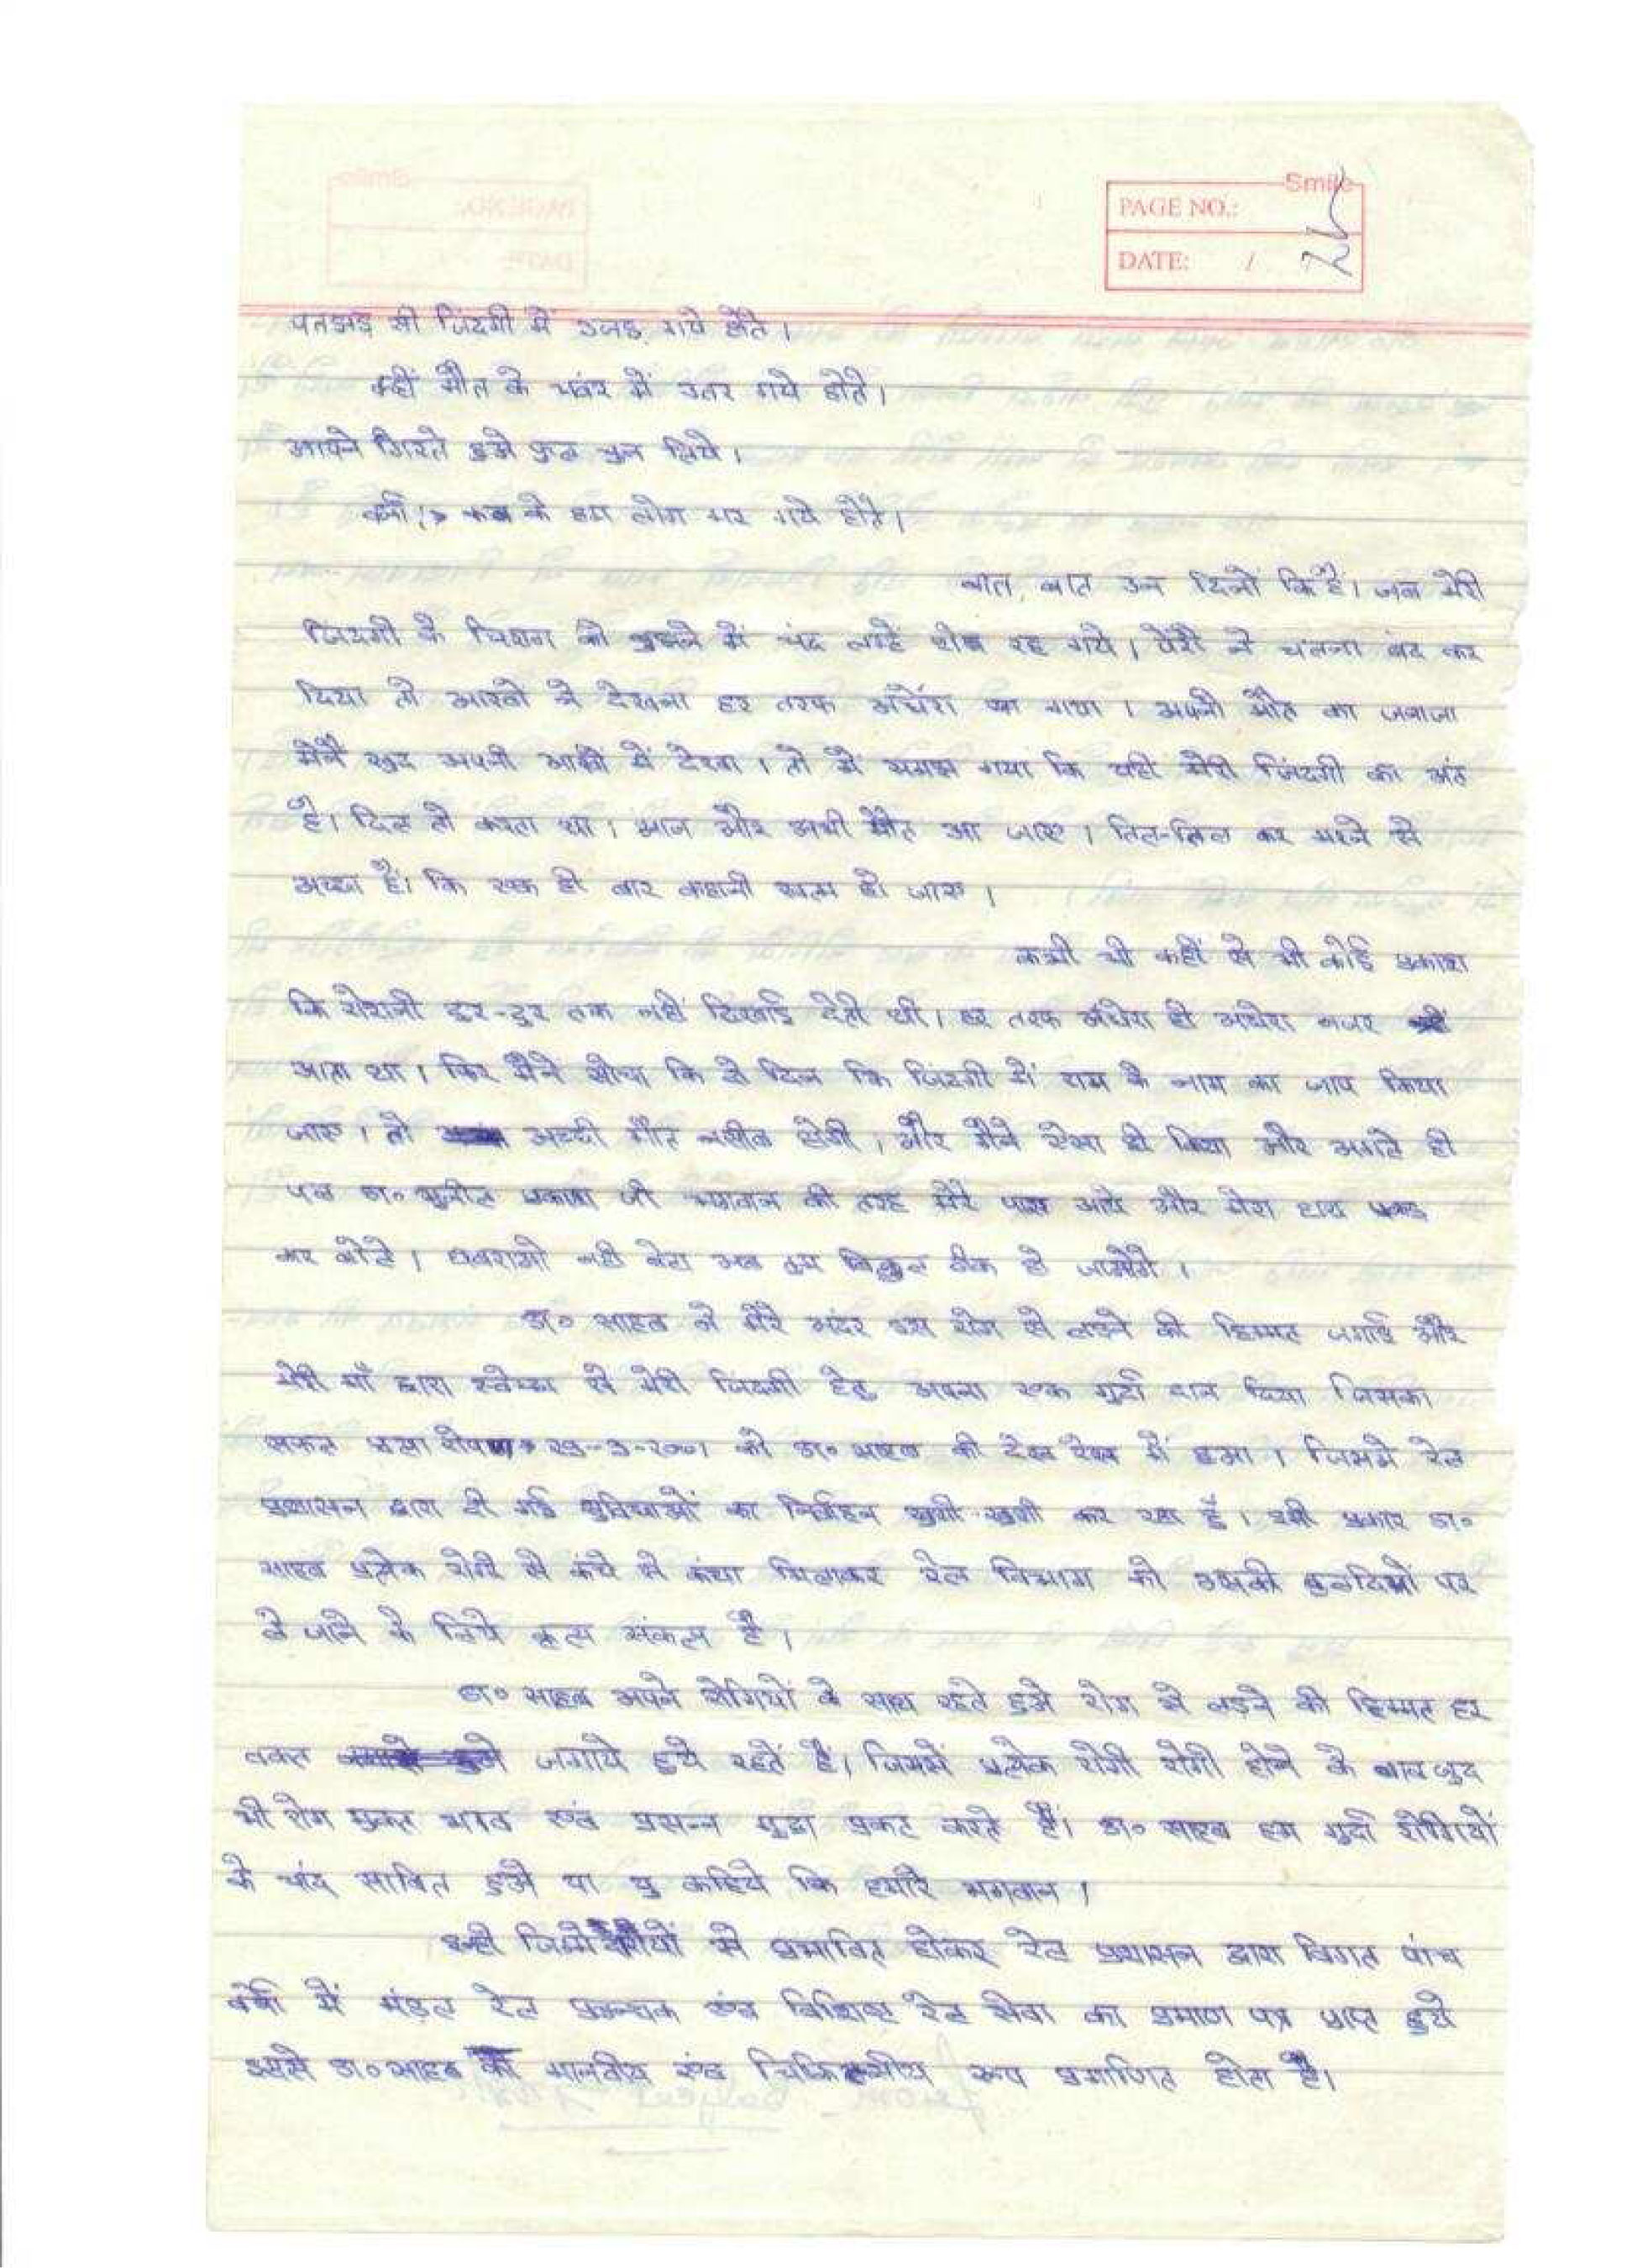 Smile
PAGE NO.:
DATE: /
पतझड़ सी जिंदगी में उजड़ गये होते।
कहीं मौत के भवंर में उतर गये होते।
आपने गिरते हुओ फुल चुन लिये।
वर्ना कब के हम लोग मर गये होते।
बात, बात उन दिनों कि है। जब मेरी
जिंदगी के चिराग को बुझने में चंद लम्हें शेष रह गये। पेरों ने चलना बंद कर
दिया तो आखों ने देखना हर तरफ अंधेरा छा गया। अपनी मौत का जनाजा
मेनें खुद अपनी आखों में देखा। तो में समझ गया कि यही मेरी जिंदगी का अंत
है। दिल तो करता था। आज और अभी मौत आ जाए। तिल-तिल कर मरने से
अच्छा है। कि एक ही बार कहानी खत्म हो जाए।
कभी भी कहीं से भी कोई प्रकाश
कि रोशनी दुर-दुर तक नहीं दिखाई देती थी। हर तरफ अंधेरा ही अंधेरा नजर
आता था। फिर मैंने सोचा कि दो दिन कि जिंदगी में राम के नाम का जाप किया
जाए। तो अच्छी मौत नसीब होगी, और मैंने ऐसा ही किया और अगले ही
पल डा॰ सुनील प्रकाश जी भगवान की तरह मेरे पास आये और मेरा हाथ पकड़
कर बोले। घबराओ नही बेटा अब तुम बिल्कुल ठीक हो जाओगे।
डा॰ साहब ने मेरे अंदर इस रोग से लड़ने की हिम्मत जगाई और
मेरी माँ द्वारा स्वेच्छा से मेरी जिंदगी हेतु अपना एक गुर्दा दान दिया जिसका
सफल प्रत्यारोपण 29-3-2001 को डा॰ साहब की देख रेख में हुआ। जिसमे रेल
प्रशासन द्वारा दी गई सुविधाओं का निर्वाहन खुशी-खुशी कर रहा हूँ। इसी प्रकार डा॰
साहब प्रत्येक रोगी से कंधे से कंधा मिलाकर रेल विभाग को उसकी बुलंदियों पर
ले जाने के लिये संकल्प है।
डा॰ साहब अपने रोगियों के साथ रहते हुओ रोग से लड़ने की हिम्मत हर
वक्त जगाये हुये रहतें है। जिसमें प्रत्येक रोगी रोगी होने के बावजुद
भी रोग मुक्त एवं प्रसन्न मुद्रा प्रकट करते हैं। डा॰ साहब हम गुर्दा रोगियों
के चांद साबित हुओ या यु कहिये कि हमारे भगवान।
इन्ही से प्रभावित होकर रेल प्रशासन द्वारा विगत पांच
वर्षो में मंड़ल रेल प्रबन्धक एंव विशिष्ट रेल सेवा का प्रमाण पत्र प्राप्त हुये
इससे डा॰ साहब का मानवीय एंव चिकित्सीय रूप प्रमाणित होता है।